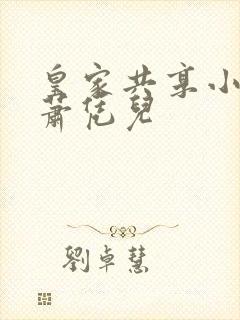 皇家共享小
蕭恁兒
劉卓慧